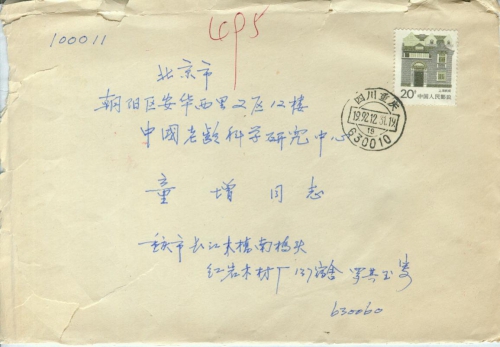 495
100011
北京市
朝阳区安华西里2区12楼
中國老龄科学研究中心
童增同志
重庆市长江大桥南桥头
红岩木材厂137宿舍
630060
20分
中国人民邮政
四川重庆
1992.12.31.19
630010